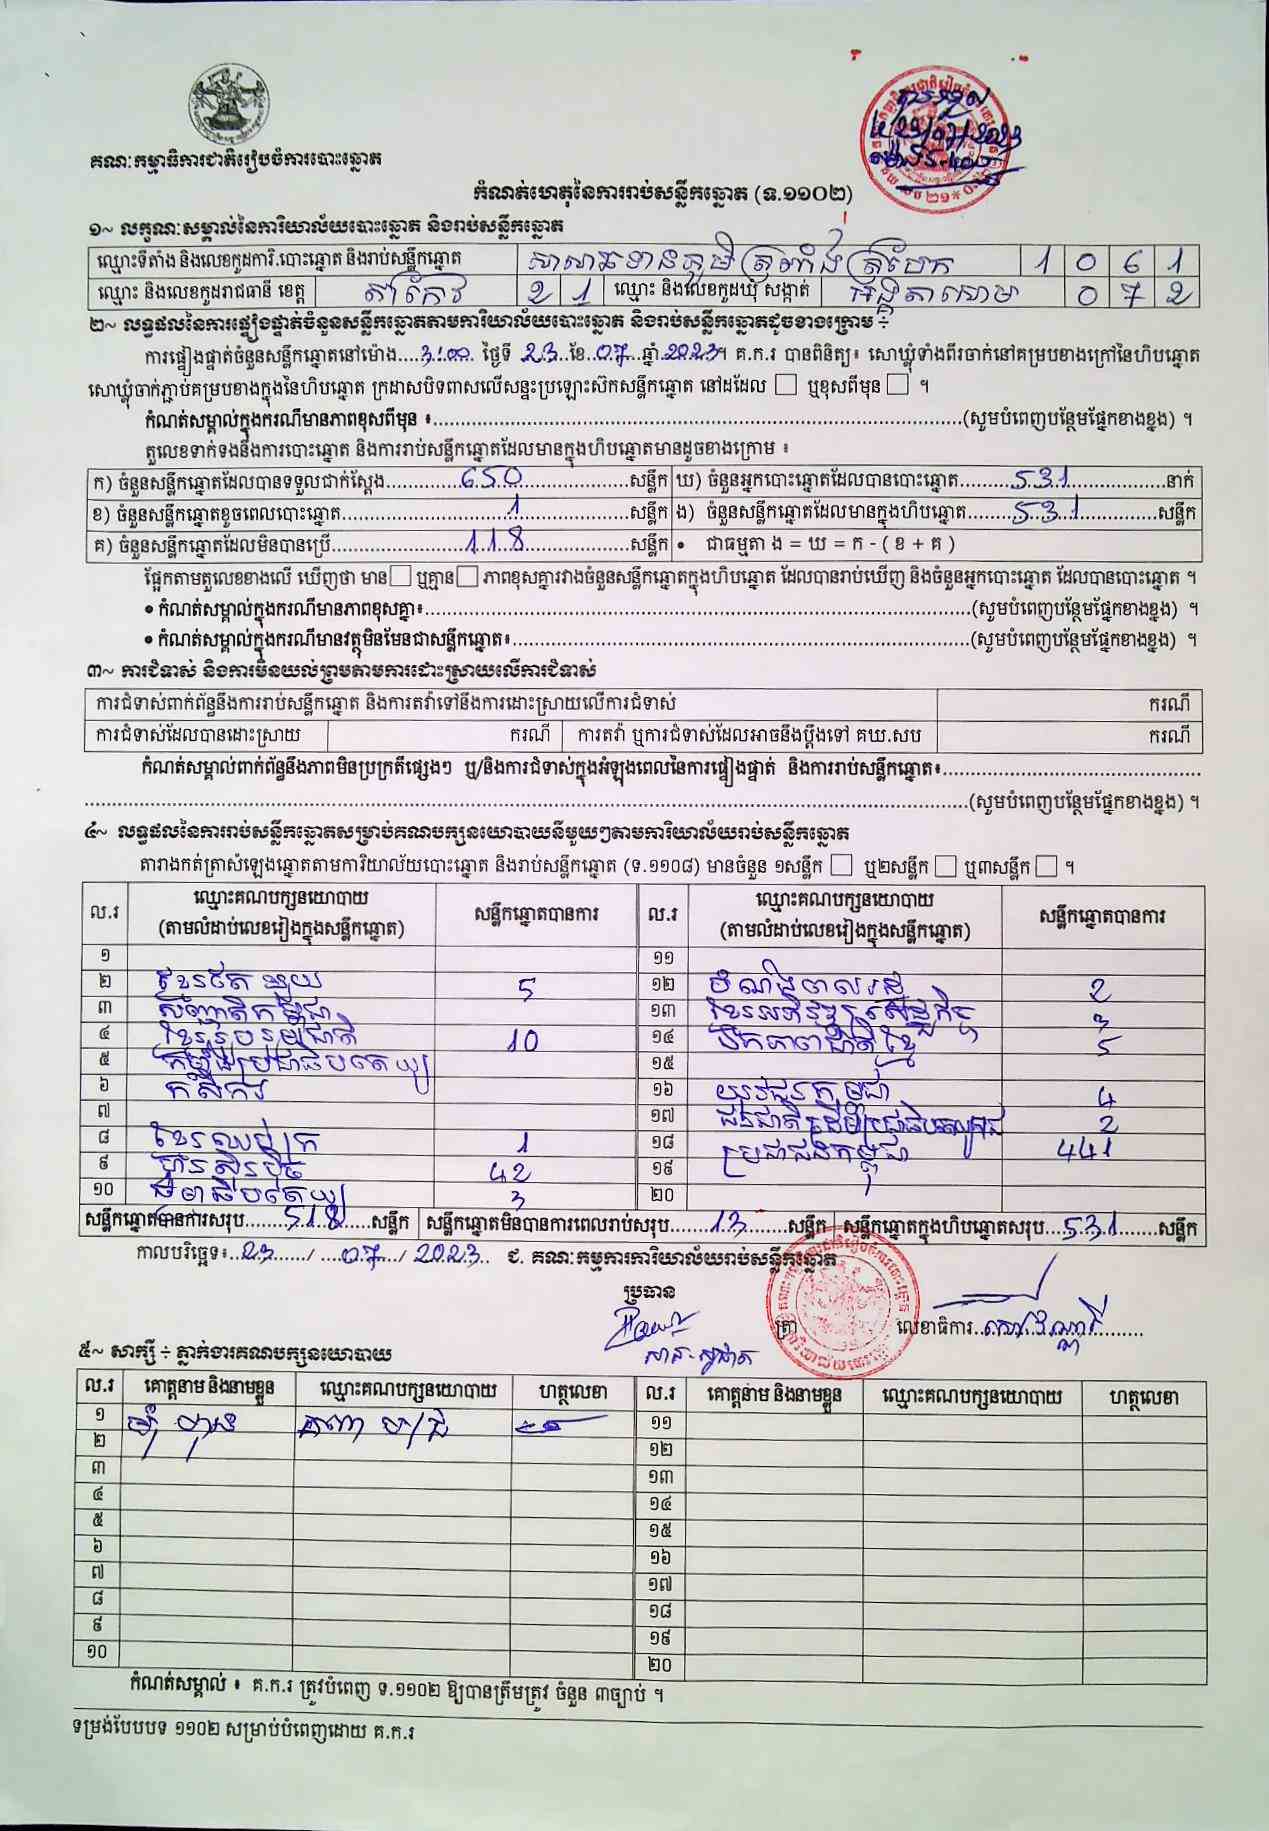 គណៈកម្មាធិការជាតិរៀបចំការបោះឆ្នោត
កំណត់ហេតុនៃការរាប់សន្លឹកឆ្នោត (ទ.១១០២)
១~ លក្ខណៈសម្គាល់នៃការិយាល័យបោះឆ្នោត និងរាប់សន្លឹកឆ្នោត
ឈ្មោះទីតាំង និងលេខកូដការិ.បោះឆ្នោត និងរាប់សន្លឹកឆ្នោត សាលាឆទានភូមិត្រពាំងត្របែក 1 0 6 1
ឈ្មោះ និងលេខកូដរាជធានី ខេត្ត តាកែវ 2 1 ឈ្មោះ និងលេខកូដឃុំ សង្កាត់ អង្គតាសោម 0 7 2
២~ លទ្ធផលនៃការផ្ទៀងផ្ទាត់ចំនួនសន្លឹកឆ្នោតតាមការិយាល័យបោះឆ្នោត និងរាប់សន្លឹកឆ្នោតដូចខាងក្រោម ÷
ការផ្ទៀងផ្ទាត់ចំនួនសន្លឹកឆ្នោតនៅម៉ោង....3:00. ថ្ងៃទី 23 ខែ.07 ឆ្នាំ 2023។ គ.ក.រ បានពិនិត្យ៖ សោឃ្លុំទាំងពីរចាក់នៅគម្របខាងក្រៅនៃហិបឆ្នោត
សោឃ្លុំចាក់ភ្ជាប់គម្របខាងក្នុងនៃហិបឆ្នោត ក្រដាសបិទពាសលើសន្ទះប្រឡោះស៊កសន្លឹកឆ្នោត នៅដដែល □ ឬខុសពីមុន □ ។
កំណត់សម្គាល់ក្នុងករណីមានភាពខុសពីមុន ៖..........(សូមបំពេញបន្ថែមផ្នែកខាងខ្នង) ។
តួលេខទាក់ទងនឹងការបោះឆ្នោត និងការរាប់សន្លឹកឆ្នោតដែលមានក្នុងហិបឆ្នោតមានដូចខាងក្រោម ៖
ក) ចំនួនសន្លឹកឆ្នោតដែលបានទទួលជាក់ស្តែង.....650.....សន្លឹក ឃ) ចំនួនអ្នកបោះឆ្នោតដែលបានបោះឆ្នោត.....531.....នាក់
ខ) ចំនួនសន្លឹកឆ្នោតខូចពេលបោះឆ្នោត.....1.....សន្លឹក ង) ចំនួនសន្លឹកឆ្នោតដែលមានក្នុងហិបឆ្នោត.....531.....សន្លឹក
គ) ចំនួនសន្លឹកឆ្នោតដែលមិនបានប្រើ.....118.....សន្លឹក • ជាធម្មតា ង = ឃ = ក - ( ខ + គ )
ផ្អែកតាមតួលេខខាងលើ ឃើញថា មាន □ ឬគ្មាន □ ភាពខុសគ្នារវាងចំនួនសន្លឹកឆ្នោតក្នុងហិបឆ្នោត ដែលបានរាប់ឃើញ និងចំនួនអ្នកបោះឆ្នោត ដែលបានបោះឆ្នោត ។
• កំណត់សម្គាល់ក្នុងករណីមានភាពខុសគ្នា៖..........(សូមបំពេញបន្ថែមផ្នែកខាងខ្នង) ។
• កំណត់សម្គាល់ក្នុងករណីមានវត្ថុមិនមែនជាសន្លឹកឆ្នោត៖..........(សូមបំពេញបន្ថែមផ្នែកខាងខ្នង) ។
៣~ ការជំទាស់ និងការមិនយល់ព្រមតាមការដោះស្រាយលើការជំទាស់
ការជំទាស់ពាក់ព័ន្ធនឹងការរាប់សន្លឹកឆ្នោត និងការតវ៉ាទៅនឹងការដោះស្រាយលើការជំទាស់ ករណី
ការជំទាស់ដែលបានដោះស្រាយ ករណី ការតវ៉ា ឬការជំទាស់ដែលអាចនឹងប្តឹងទៅ គឃ.សប ករណី
កំណត់សម្គាល់ពាក់ព័ន្ធនឹងភាពមិនប្រក្រតីផ្សេងៗ ឬ/និងការជំទាស់ក្នុងអំឡុងពេលនៃការផ្ទៀងផ្ទាត់ និងការរាប់សន្លឹកឆ្នោត៖..........
..........(សូមបំពេញបន្ថែមផ្នែកខាងខ្នង) ។
៤~ លទ្ធផលនៃការរាប់សន្លឹកឆ្នោតសម្រាប់គណបក្សនយោបាយនីមួយៗតាមការិយាល័យរាប់សន្លឹកឆ្នោត
តារាងកត់ត្រាសំឡេងឆ្នោតតាមការិយាល័យបោះឆ្នោត និងរាប់សន្លឹកឆ្នោត (ទ.១១០៨) មានចំនួន ១សន្លឹក □ ឬ២សន្លឹក □ ឬ៣សន្លឹក □ ។
ល.រ ឈ្មោះគណបក្សនយោបាយ (តាមលំដាប់លេខរៀងក្នុងសន្លឹកឆ្នោត) សន្លឹកឆ្នោតបានការ ល.រ ឈ្មោះគណបក្សនយោបាយ (តាមលំដាប់លេខរៀងក្នុងសន្លឹកឆ្នោត) សន្លឹកឆ្នោតបានការ
១ ១១
២ ខ្មែរឈប់ក្រ 5 ១២ 2
៣ សញ្ជាតិកម្ពុជា ១៣ ខ្មែរអភិវឌ្ឍន៍សេដ្ឋកិច្ច 3
៤ ខ្មែររួបរួមជាតិ 10 ១៤ ឯកភាពជាតិខ្មែរ 5
៥ កម្ពុជាប្រជាធិបតេយ្យ ១៥
៦ កសិករ ១៦ យុវជនកម្ពុជា 4
៧ ១៧ ជនជាតិដើមប្រជាធិបតេយ្យ 2
៨ ខ្មែរឈប់ក្រ 1 ១៨ ប្រជាជនកម្ពុជា 441
៩ ហ្វ៊ុនស៊ិនប៉ិច 42 ១៩
១០ ធម្មាធិបតេយ្យ 3 ២០
សន្លឹកឆ្នោតបានការសរុប.....518.....សន្លឹក សន្លឹកឆ្នោតមិនបានការពេលរាប់សរុប.....13.....សន្លឹក សន្លឹកឆ្នោតក្នុងហិបឆ្នោតសរុប...531.....សន្លឹក
កាលបរិច្ឆេទ៖..23...../....07.../ 2023.. ជ. គណៈកម្មការការិយាល័យរាប់សន្លឹកឆ្នោត
ប្រធាន
ត្រា លេខាធិការ
៥~ សាក្សី ÷ ភ្នាក់ងារគណបក្សនយោបាយ
ល.រ គោត្តនាម និងនាមខ្លួន ឈ្មោះគណបក្សនយោបាយ ហត្ថលេខា ល.រ គោត្តនាម និងនាមខ្លួន ឈ្មោះគណបក្សនយោបាយ ហត្ថលេខា
១ ១១
២ ១២
៣ ១៣
៤ ១៤
៥ ១៥
៦ ១៦
៧ ១៧
៨ ១៨
៩ ១៩
១០ ២០
កំណត់សម្គាល់ ៖ គ.ក.រ ត្រូវបំពេញ ទ.១១០២ ឱ្យបានត្រឹមត្រូវ ចំនួន ៣ច្បាប់ ។
ទម្រង់បែបបទ ១១០២ សម្រាប់បំពេញដោយ គ.ក.រ